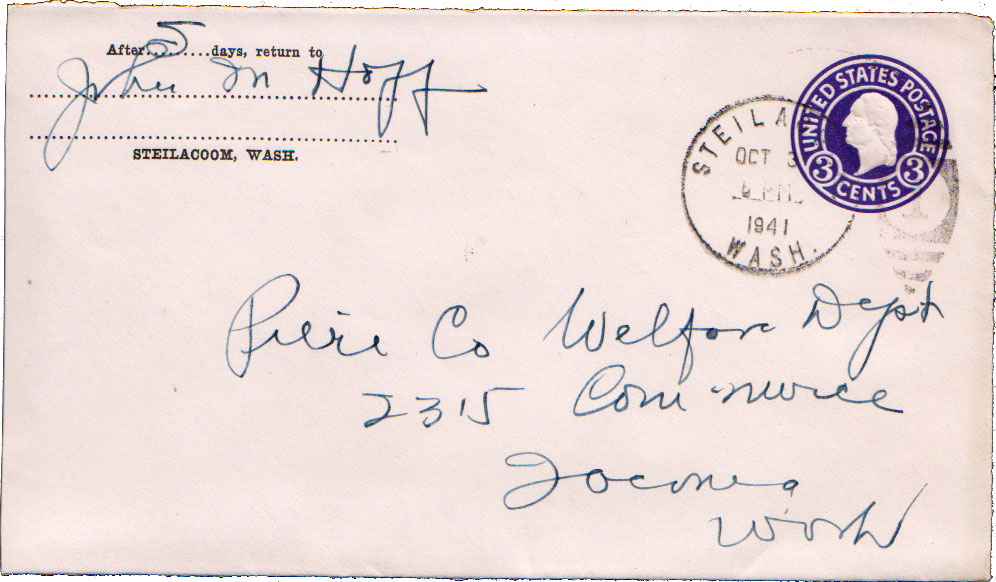 After 5 days, return to
John M Hoff
STEILACOOM, WASH.
UNITED STATES POSTAGE
3 CENTS 3
STEILA
OCT 3
1941
WASH.
Pierce Co Welfare Dept
2315 Commerce
Tacoma
Wash